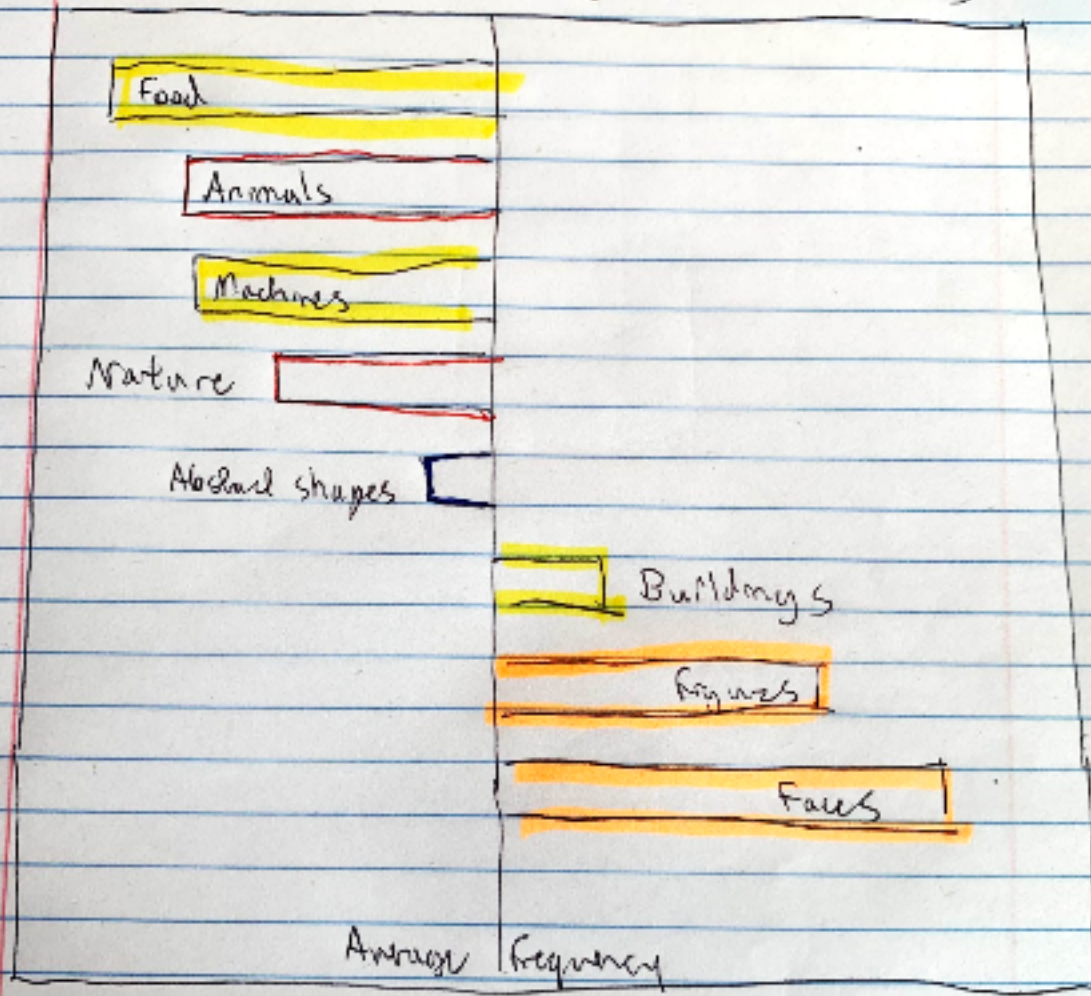 Food
Animals
Machines
Nature
Abstract shapes
Buildings
Figures
Faces
Average frequency